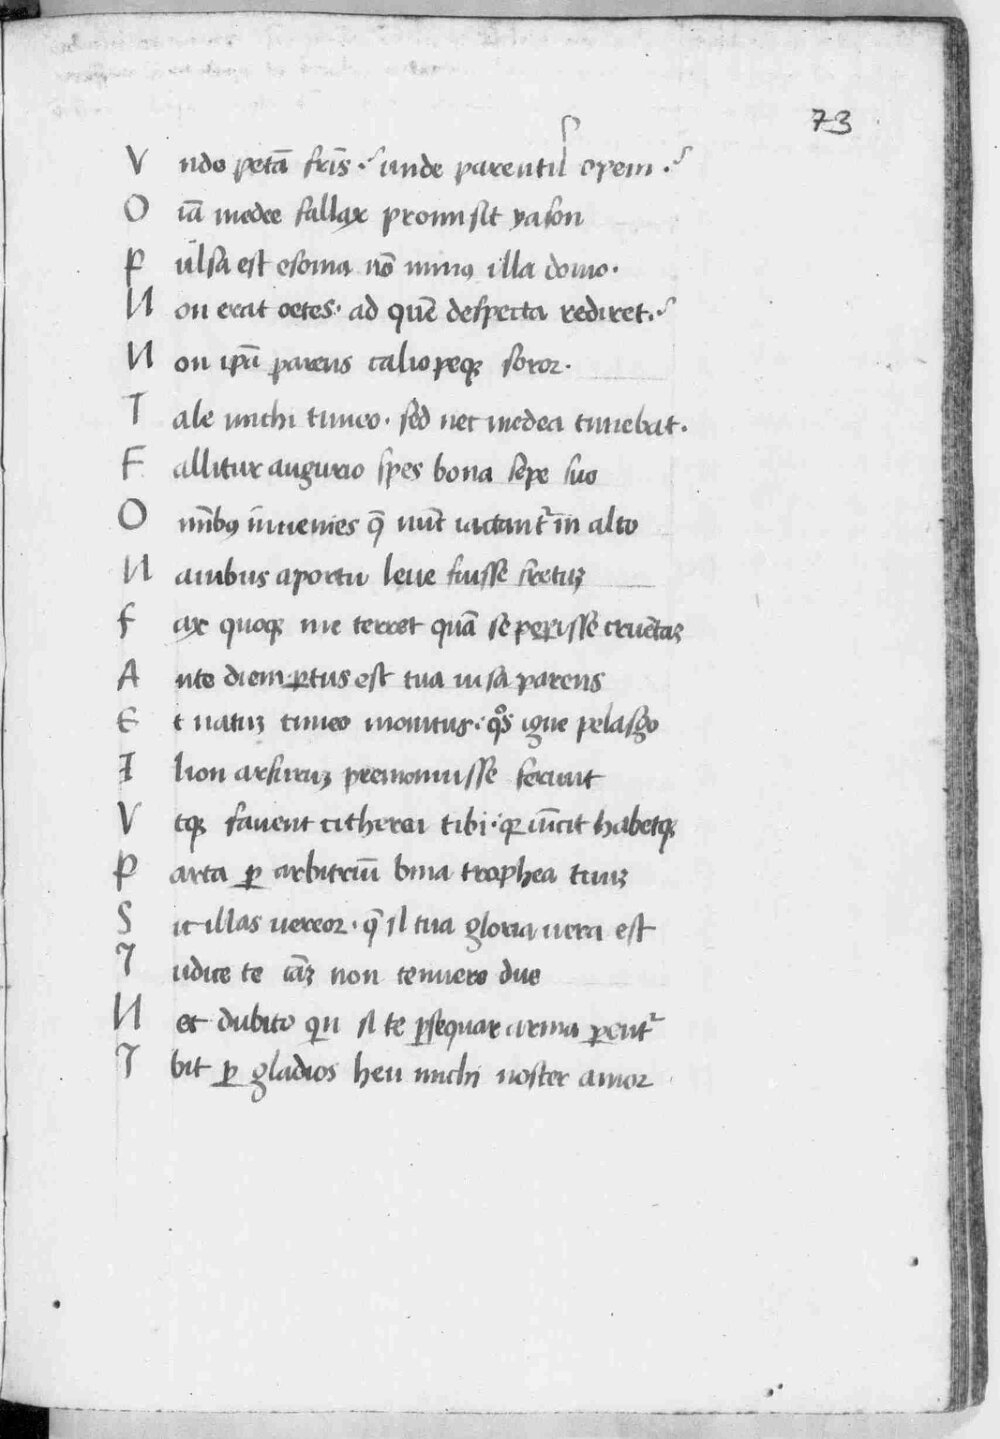 73
V nde petā fr̄is .? unde parentis opem .?
O īa medee fallax promisit yason
P ulsa est esonia nō minus illa domo.
N on erat oetes. ad quē despecta rediret.?
N on ip̄a parens caliopeqꝫ soror.
T ale michi timeo. sed nec medea timebat.
F allitur augurio spes bona sepe suo
O mībꝯ īuenies q̄ nūc iactant᷑ in alto
N auibus aportu leue fuisse fretuꝫ
F ax quoqꝫ me terret quā se peꝑisse cruētaꝫ
A nte diem ꝑtus est tua uisa parens
E t uatuꝫ timeo monitus. qͦs igne pelasgo
I lion arsuruꝫ premonuisse ferunt
V tqꝫ fauent citherei tibi. qꝛ uīcit habetqꝫ
P arta ꝑ arbitriū bina trophea tuuꝫ
S ic illas uereor. q̄ si tua gloria uera est
I udice te cāꝫ non tenuere due
N ec dubito qn si te ꝑsequar arma ꝑent᷑
I bit ꝑ gladios heu michi noster amor